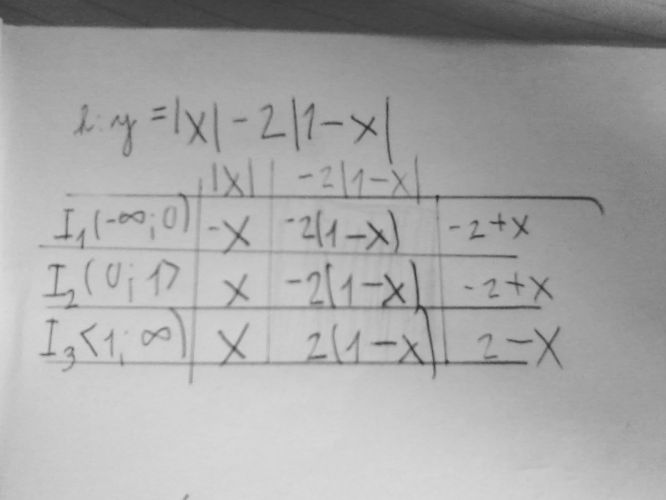 h: y = |x| - 2|1-x|
|x| -2|1-x|
I₁ (-∞; 0) -x -2(1-x) -2+x
I₂ (0; 1> x -2(1-x) -2+x
I₃ <1; ∞) x 2(1-x) 2-x